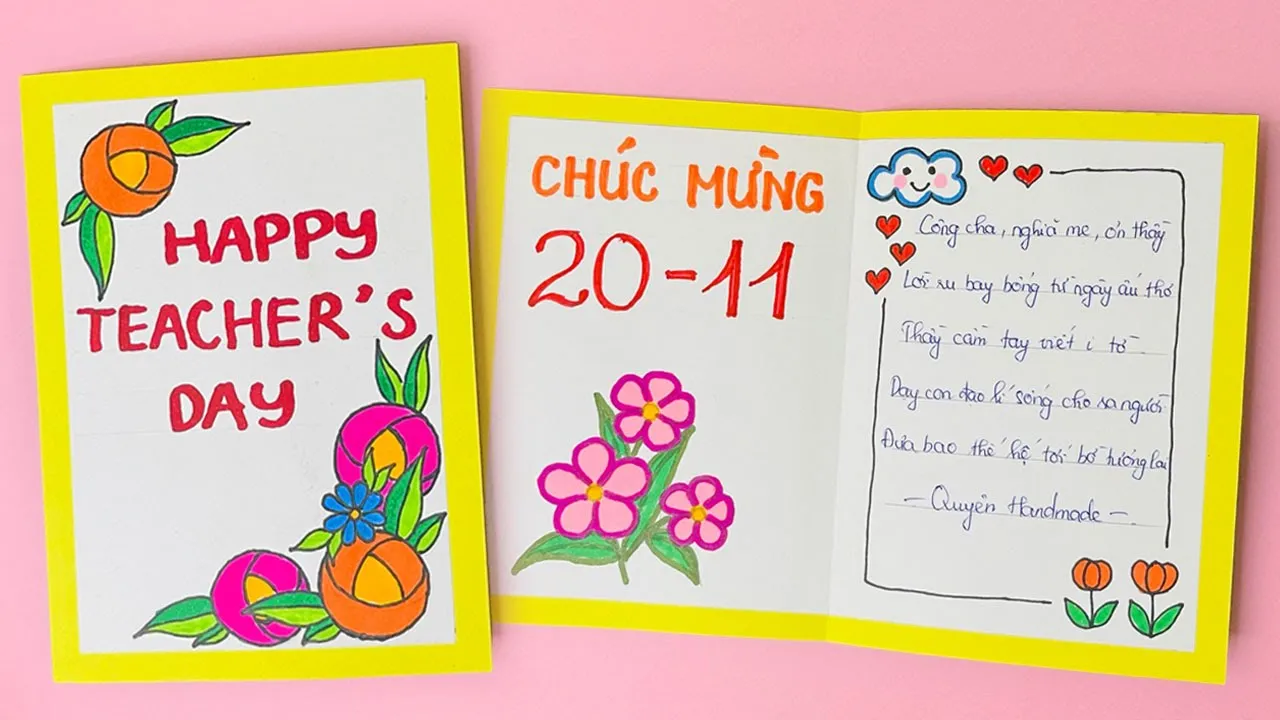 HAPPY
TEACHER'S
DAY
CHÚC MỪNG
20-11
Công cha, nghĩa mẹ, ơn thầy
Lời ru bay bổng từ ngày ấu thơ
Thầy cầm tay viết i tờ
Dạy con đạo lí sống cho ra người
Đưa bao thế hệ tới bờ tương lai
- Quyên Handmade -